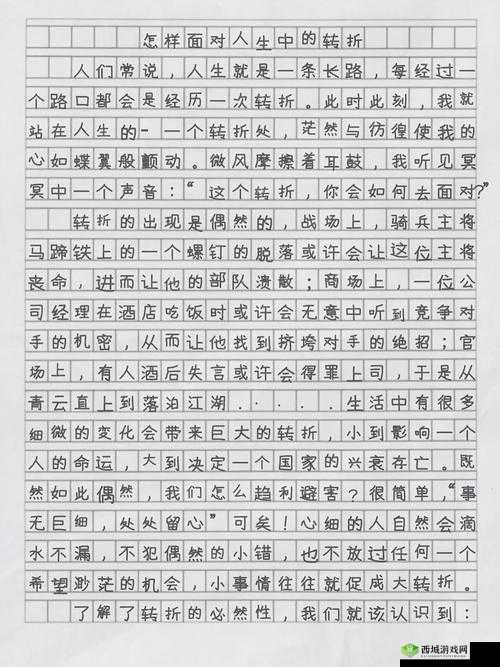 怎样面对人生中的转折
人们常说，人生就是一条长路，每经过一
个路口都会是经历一次转折。此时此刻，我就
站在人生的-一个转折处，茫然与彷徨使我的
心如蝶翼般颤动。微风摩擦着耳鼓，我听见冥
冥中一个声音：“这个转折，你会如何去面对？”
转折的出现是偶然的，战场上，骑兵主将
马蹄铁上的一个螺钉的脱落或许会让这位主将
丧命，进而让他的部队溃散；商场上，一位公
司经理在酒店吃饭时或许会无意中听到竞争对
手的机密，从而让他找到挤垮对手的绝招；官
场上，有人酒后失言或许会得罪上司，于是从
青云直上到落泊江湖····生活中有很多
细微的变化会带来巨大的转折，小到影响一个
人的命运，大到决定一个国家的兴衰存亡。既
然如此偶然，我们怎么趋利避害？很简单，“事
无巨细，处处留心”可矣！心细的人自然会滴
水不漏，不犯偶然的小错，也不放过任何一个
希望渺茫的机会，小事情往往就促成大转折。
了解了转折的必然性，我们就该认识到：
西城游戏网